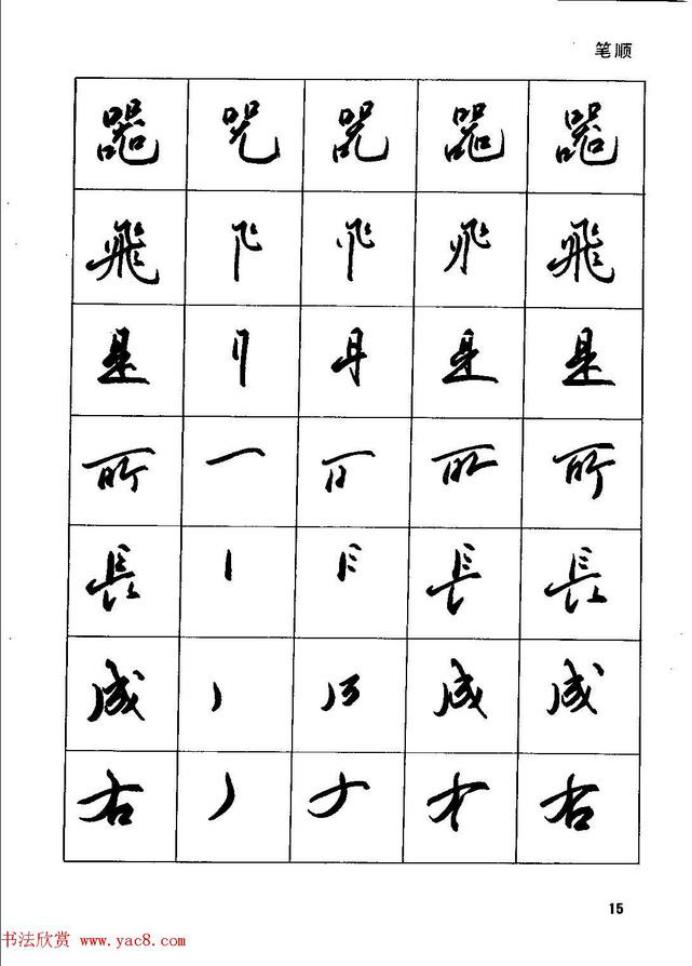 笔顺
器 器
飛 飛
是 是
所 所
長 長
成 成 成
右 右
15
书法欣赏 www.yac8.com